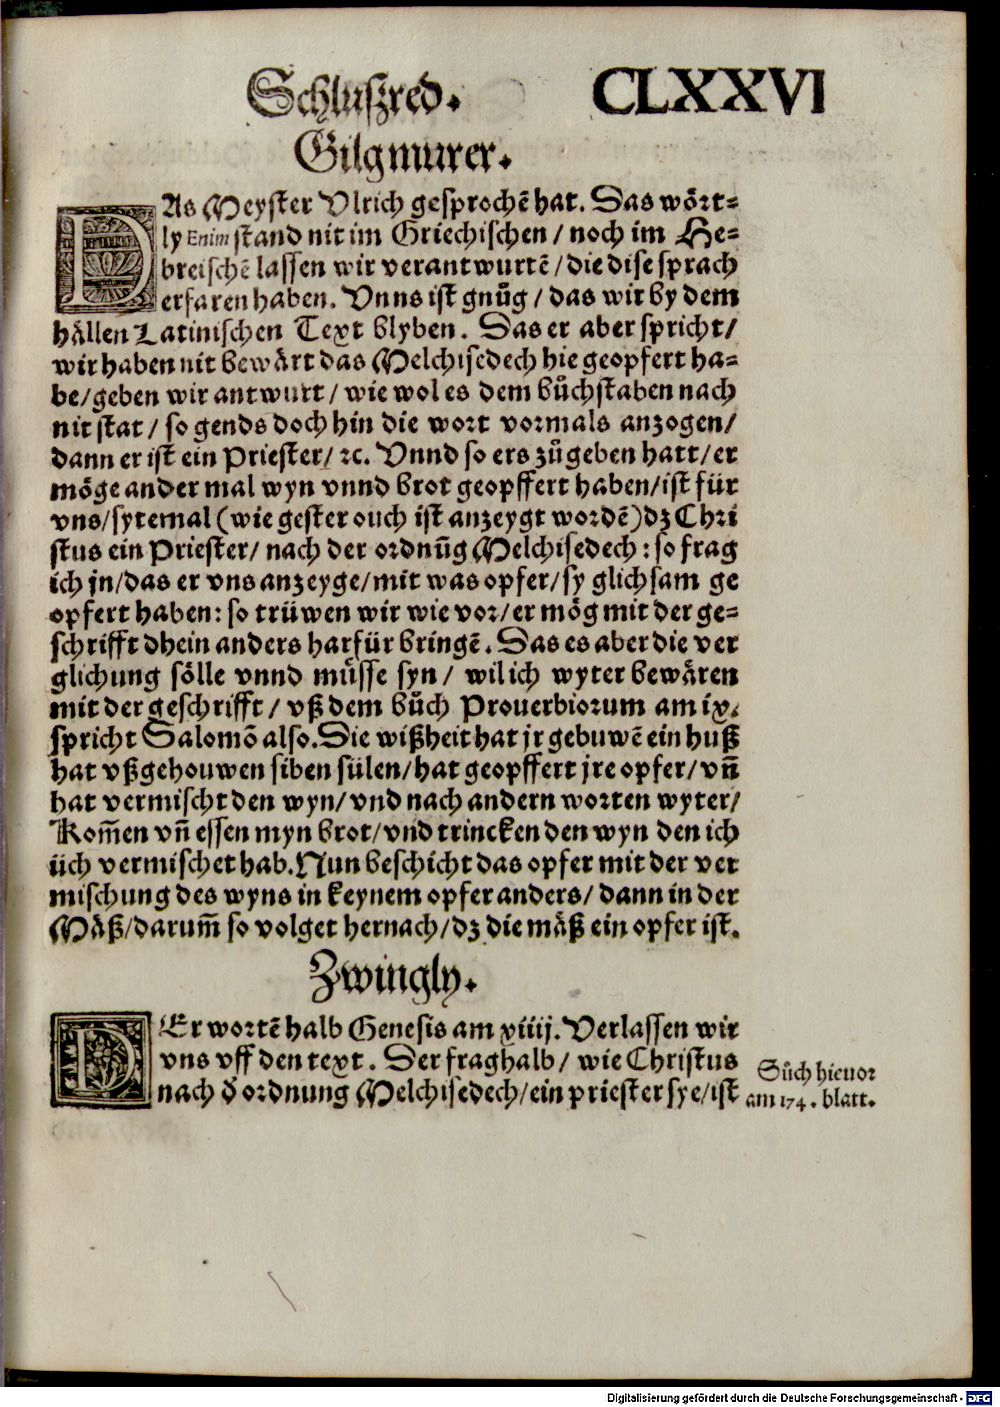 Schluſzred. CLXXVI
Gilgmurer.
DAs Meyſter Vlrich geſprochē hat. Das wört⸗
ly Enim ſtand nit im Griechiſchen / noch im He⸗
breiſchē laſſen wir verantwurtē / die diſe ſprach
erfaren haben. Vnns iſt gnůg / das wir by dem
hällen Latiniſchen Text blyben. Das er aber ſpricht/
wir haben nit bewärt das Melchiſedech hie geopfert ha⸗
be/geben wir antwurt / wie wol es dem bůchſtaben nach
nit ſtat / ſo gends doch hin die wort vormals anzogen/
dann er iſt ein Prieſter/ ꝛc. Vnnd ſo ers zůgeben hatt/ er
möge ander mal wyn vnnd brot geopffert haben/iſt für
vns/ſytemal (wie geſter ouch iſt anzeygt wordē)dz Chri
ſtus ein Prieſter/ nach der ordnūg Melchiſedech : ſo frag
ich jn/das er vns anzeyge/mit was opfer/ſy glichſam ge
opfert haben: ſo trüwen wir wie vor/ er mög mit der ge⸗
ſchrifft dhein anders harfür bringē. Das es aber die ver
glichung ſölle vnnd müſſe ſyn / wil ich wyter bewären
mit der geſchrifft / vß dem bůch Prouerbiorum am ix.
ſpricht Salomō alſo. Die wißheit hat jr gebuwē ein huß
hat vßgehouwen ſiben ſülen/hat geopffert jre opfer/ vñ
hat vermiſcht den wyn/ vnd nach andern worten wyter/
Kom̄en vñ eſſen myn brot/vnd trincken den wyn den ich
üch vermiſchet hab. Nun beſchicht das opfer mit der ver
miſchung des wyns in keynem opfer anders/ dann in der
Mäß/darum̄ ſo volget hernach/dz die mäß ein opfer iſt.
Zwingly.
DEr wortē halb Geneſis am xiiij. Verlaſſen wir
vns vff den text. Der frag halb/ wie Chriſtus
nach ď ordnung Melchiſedech/ein prieſter ſye/iſt
Sůch hieuor
am 174. blatt.
Digitalisierung gefördert durch die Deutsche Forschungsgemeinschaft - DFG